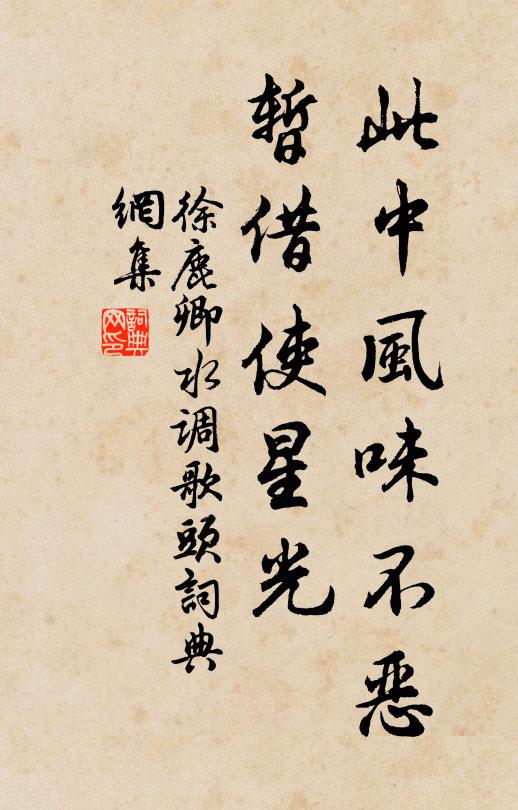 此中風味不惡
暫借使星光
徐鹿卿水调歌頭詞典
網集
詞典
网印